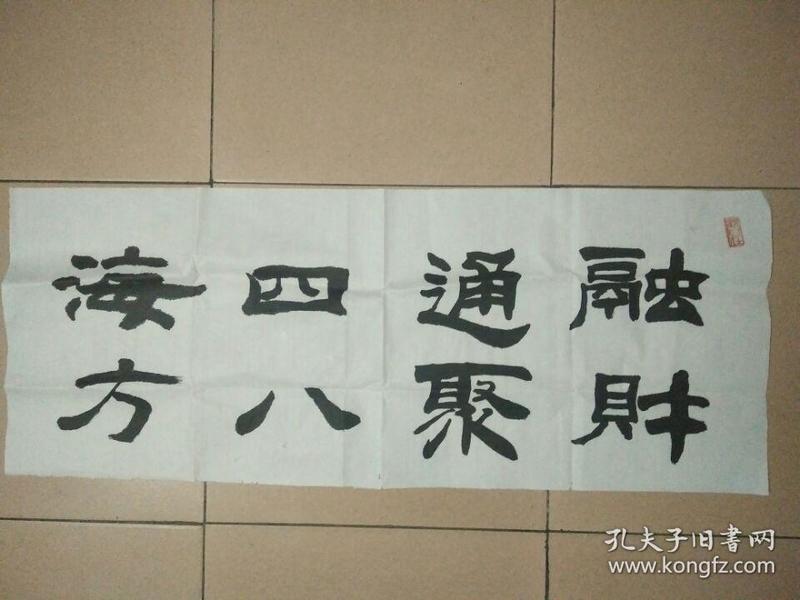 融財
通聚
四八
海方
孔夫子旧書网
www.kongfz.com